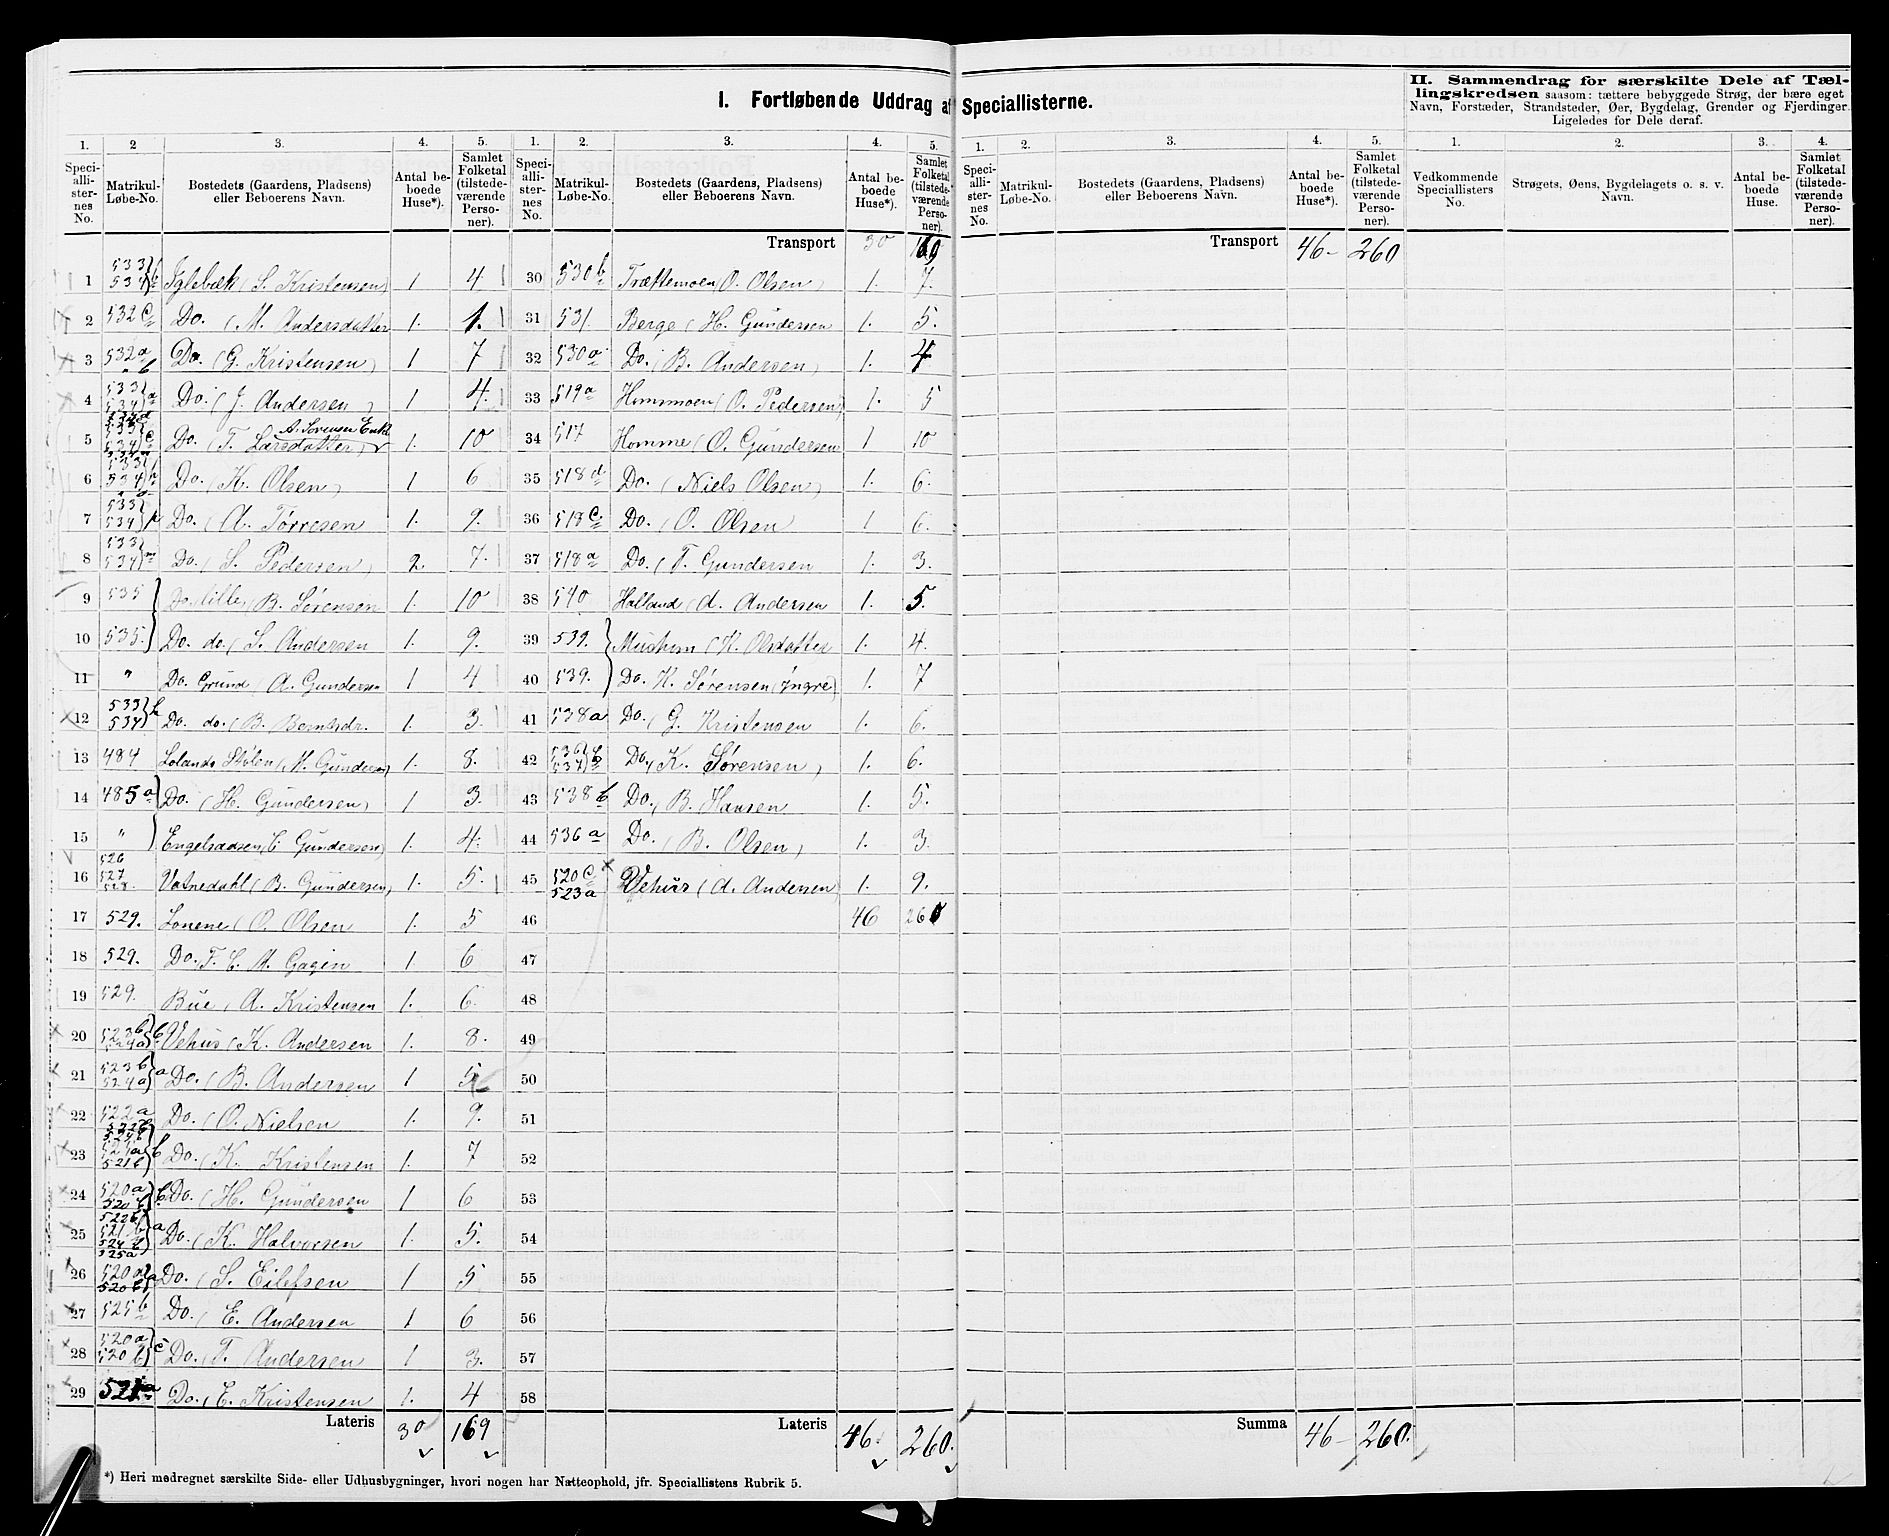 I. Fortløbende Uddrag af Speciallisterne.
II. Sammendrag for særskilte Dele af Tællingskredsen saasom: tættere bebyggede Strøg, der bære eget
Navn, Forstæder, Strandsteder, Øer, Bygdelag, Grender og Fjerdinger.
Ligeledes for Dele deraf.
1. 2 3. 4. 5. 1. 2. 3. 4. 5. 1. 2. 3. 4. 5. 1. 2. 3. 4.
Speciallisternes No. Matrikul-Løbe-No. Bostedets (Gaardens, Pladsens) eller Beboerens Navn. Antal beboede Huse*). Samlet Folketal (tilstedeværende Personer).
Speciallisternes No. Matrikul-Løbe-No. Bostedets (Gaardens, Pladsens) eller Beboerens Navn. Antal beboede Huse*). Samlet Folketal (tilstedeværende Personer).
Speciallisternes No. Matrikul-Løbe-No. Bostedets (Gaardens, Pladsens) eller Beboerens Navn. Antal beboede Huse*). Samlet Folketal (tilstedeværende Personer).
Vedkommende Speciallisters No. Strøgets, Øens, Bygdelagets o. s. v. Navn. Antal beboede Huse. Samlet Folketal (tilstedeværende Personer).
1 533 534 Iglebæk (S. Kristensen) 1 4
2 532 c Do. (M. Andersdatter 1. 1.
3 532 a b Do. (G. Kristensen) 1 7
4 533 534 a Do. (J. Andersen) 1 4.
5 533 534 c Do. (T. Larsdatter) A. Sørensen Enke 1. 10
6 533 534 Do. (K. Olsen) 1 6
7 533 534 Do. (A. Tørresen 1. 9.
8 533 534 m Do. (S. Pedersen) 2. 7.
9 535 Do. lille (B. Sørensen 1. 10
10 535. Do. do. (S. Andersen 1. 9.
11 " Do. Grund (A. Gundersen 1 4
12 533 534 Do. do. (B. Berntsdr. 1. 3.
13 484 Lolands Stølen (H. Gundersen) 1. 8.
14 485 a Do. (H. Gundersen) 1 3.
15 " (C Gundersen) 1. 4.
16 526 527 528. Vatnedahl (B. Gundersen) 1. 5.
17 529. Lonene (O. Olsen 1. 5
18 529. Do. T. C. M. Gagin 1 6
19 529. Bue (A. Kristensen 1. 6.
20 523 b 524 a b Vehus (K. Andersen 1. 8.
21 523 b 524 a a Do. (B. Andersen 1 5
22 522 a Do. (O. Nielsen 1. 9.
23 521 a 521 b b Do. (K. Kristensen 1. 7
24 520 a 520 b b Do. (H. Gundersen 1 6
25 522 b 521 b 524 b 525 a a Do. (K. Halvorsen 1. 5.
26 520 a 520 b a Do. (S. Eilefsen 1 5
27 525 b Do. (E. Andersen 1 6
28 520 a 520 b c Do. (T. Andersen 1 3.
29 521 a Do. (E. Kristensen 1. 4
Lateris 30 169
Transport 30 169
30 530 b Trættemoen (O. Olsen) 1. 7.
31 531. Berge (H. Gundersen 1. 5.
32 530 a Do. (B. Andersen) 1. 4
33 519 a Hommoen (O. Pedersen) 1. 5
34 517 Homme (O. Gundersen 1 10
35 518 d Do. (Niels Olsen) 1. 6.
36 518 c Do. (O. Olsen 1 6.
37 518 a Do. (T. Gundersen 1. 3.
38 540 Halland (A. Andersen 1. 5.
39 539. (K. Olsdatter 1. 4.
40 539. Do. K. Sørensen (Yngre) 1. 7
41 538 a Do. (G. Kristensen 1. 6.
42 536 537 b Do. (K. Sørensen) 1. 6.
43 538 b Do. (B. Hansen 1. 5.
44 536 a Do. (B. Olsen) 1. 3.
45 520 c 523 a Vehus (A. Andersen) 1. 9.
46 46 260
47
48
49
50
51
52
53
54
55
56
57
58
Lateris 46. 260.
Transport 46- 260
Summa 46- 260.
*) Heri medregnet særskilte Side- eller Udhusbygninger, hvori nogen har Natteophold, jfr. Speciallistens Rubrik 5.